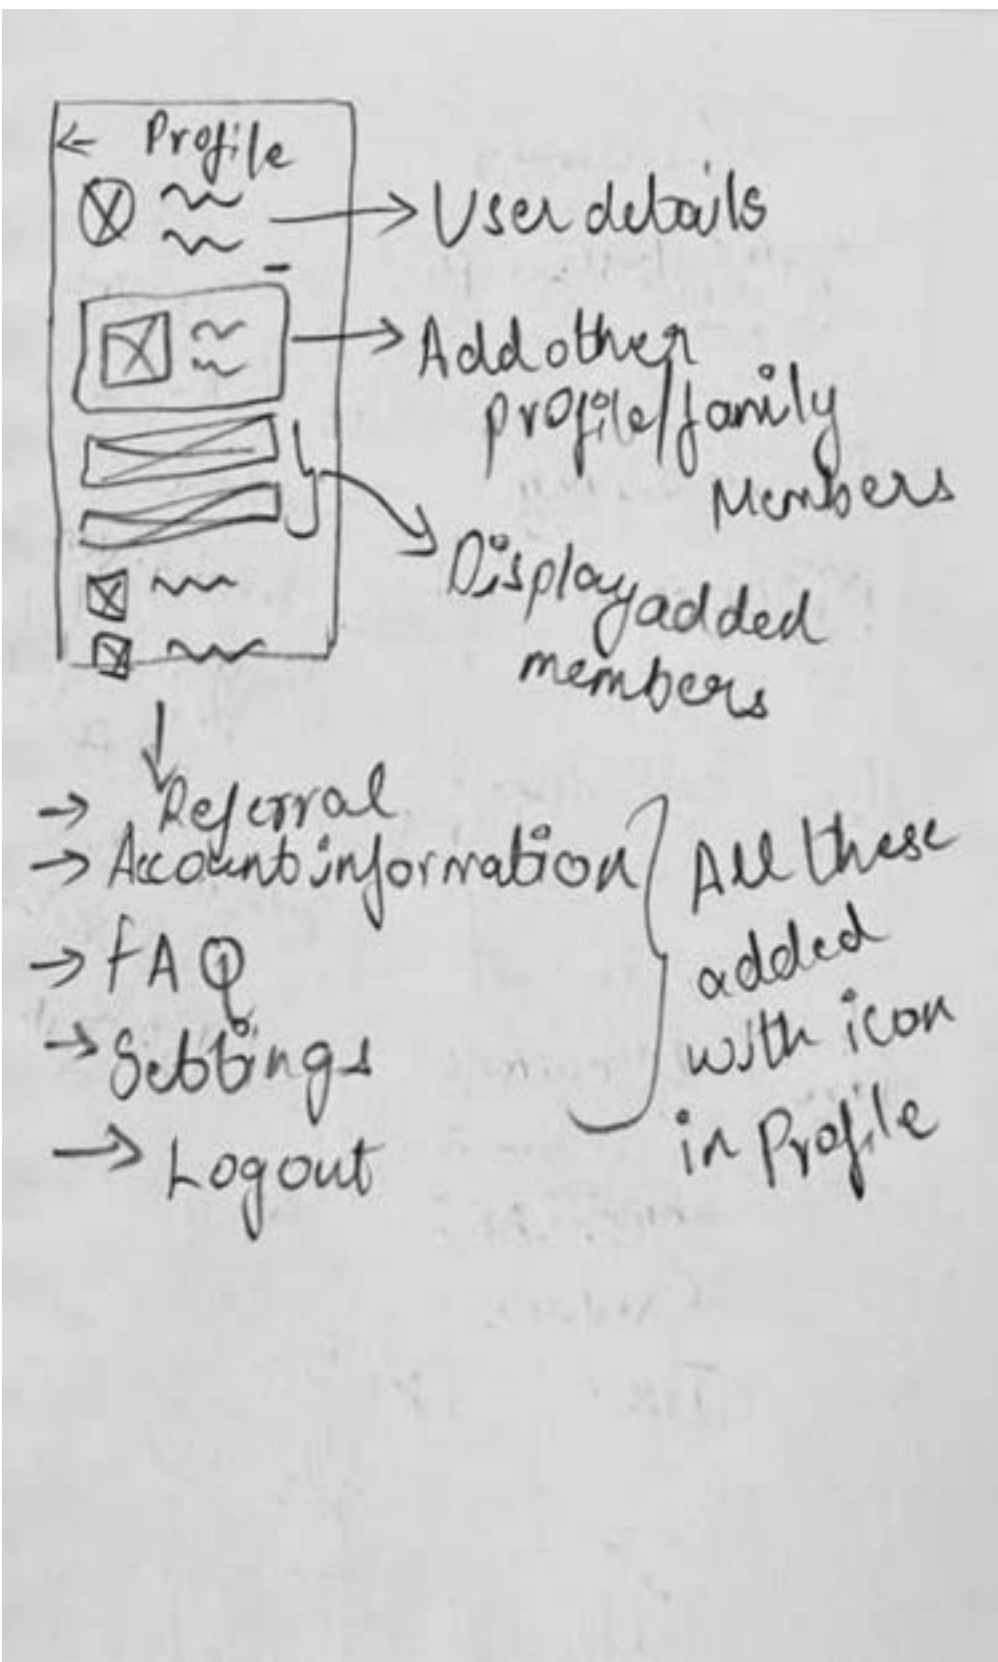 ← Profile
→ User details
→ Add other
profile/family
Members
Display added
members
→ Referral
→ Account information
→ FAQ
→ Settings
→ Logout
All these
added
with icon
in Profile